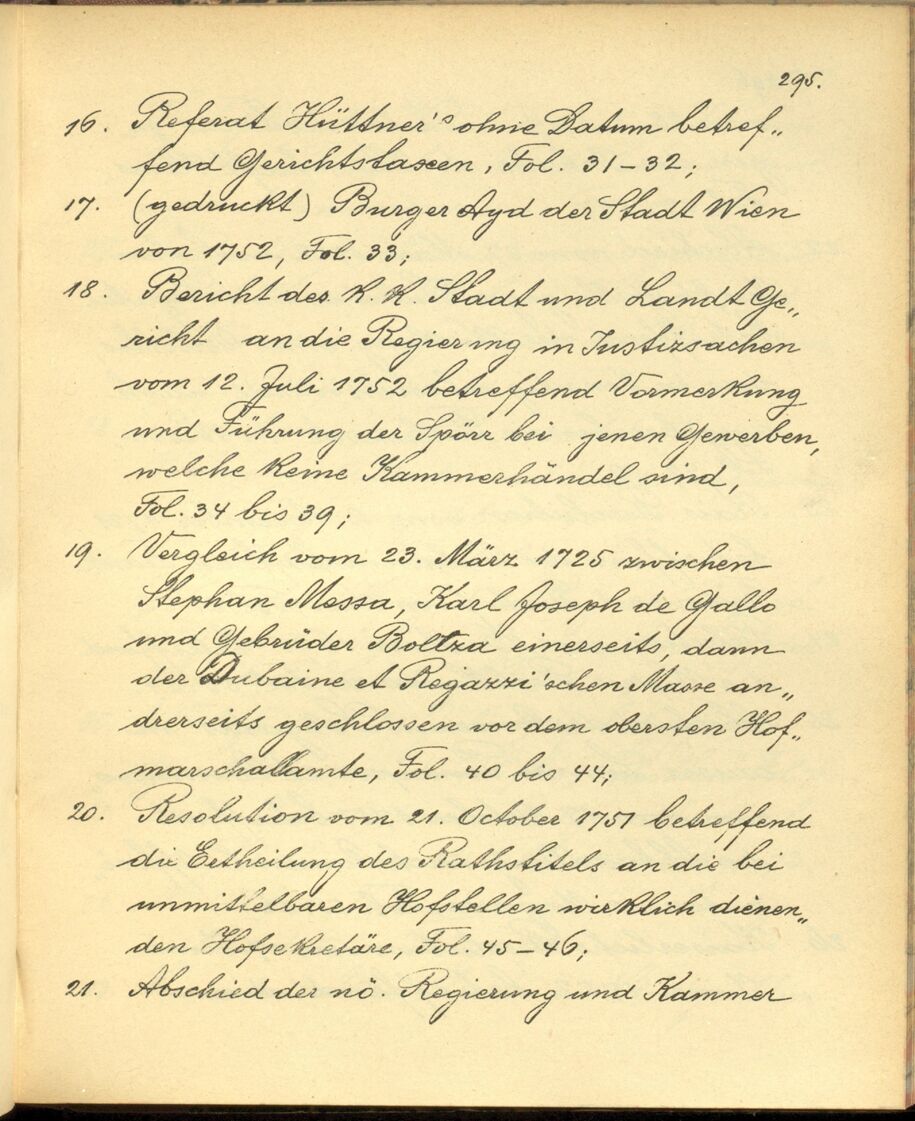 295.
16. Referat Hüttner's ohne Datum betref„
fend Gerichtstaxen, Fol. 31–32;
17. (gedruckt) Burger Ayd der Stadt Wien
von 1752, Fol. 33;
18. Bericht des k. k. Stadt und Landt Ge„
richt an die Regierung in Justizsachen
vom 12. Juli 1752 betreffend Vormerkung
und Führung der Spörr bei jenen Gewerben,
welche keine Kammerhändel sind,
Fol. 34 bis 39;
19. Vergleich vom 23. März 1725 zwischen
Stephan Messa, Karl Joseph de Gallo
und Gebrüder Boltza einerseits, dann
der Dubaine et Regazzi'schen Masse an„
drerseits geschlossen vor dem obersten Hof„
marschallamte, Fol. 40 bis 44;
20. Resolution vom 21. October 1751 betreffend
die Ertheilung des Rathstitels an die bei
unmittelbaren Hofstellen wirklich dienen„
den Hofsekretäre, Fol. 45–46;
21. Abschied der nö. Regierung und Kammer